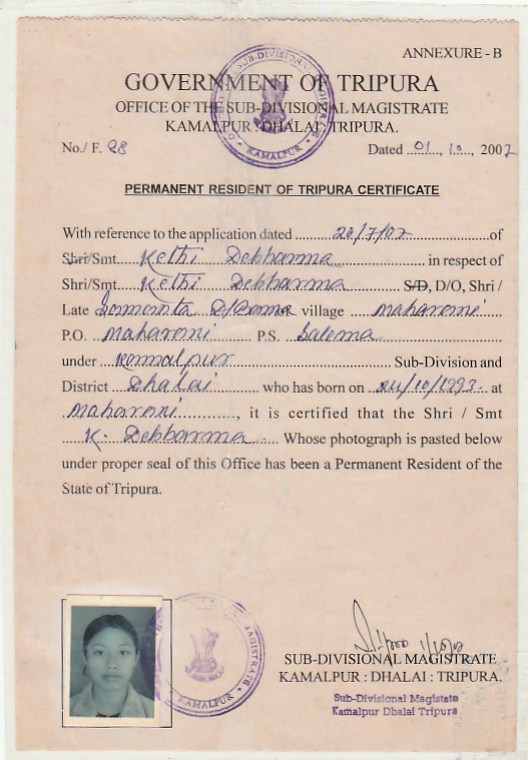 ANNEXURE - B
GOVERNMENT OF TRIPURA
OFFICE OF THE SUB-DIVISIONAL MAGISTRATE
KAMALPUR : DHALAI : TRIPURA.
No./ F. 98 Dated 01, 10, 2007
PERMANENT RESIDENT OF TRIPURA CERTIFICATE
With reference to the application dated 20/7/07 of
Shri/Smt. Kethi Debbarma in respect of
Shri/Smt. Kethi Debbarma S/D, D/O, Shri /
Late D/Barma village Maharani
P.O. Maharani P.S. Salema
under Kamalpur Sub-Division and
District Dhalai who has born on 24/10/1993 at
Maharani, it is certified that the Shri / Smt
K. Debbarma Whose photograph is pasted below
under proper seal of this Office has been a Permanent Resident of the
State of Tripura.
KAMALPUR
SUB-DIVISIONAL MAGISTRATE
KAMALPUR : DHALAI : TRIPURA.
Sub-Divisional Magistate
Kamalpur Dhalai Tripura